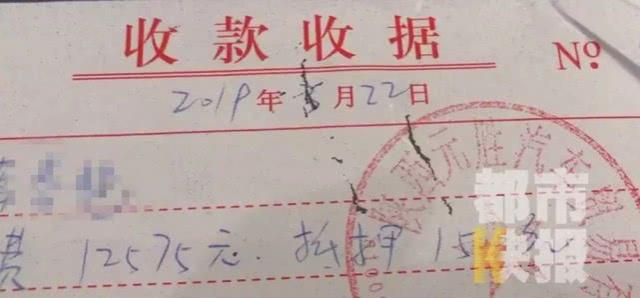 收款收据
No.
2019年5月22日
费 12575元. 抵押 15
陕西元胜汽车
都市
快报